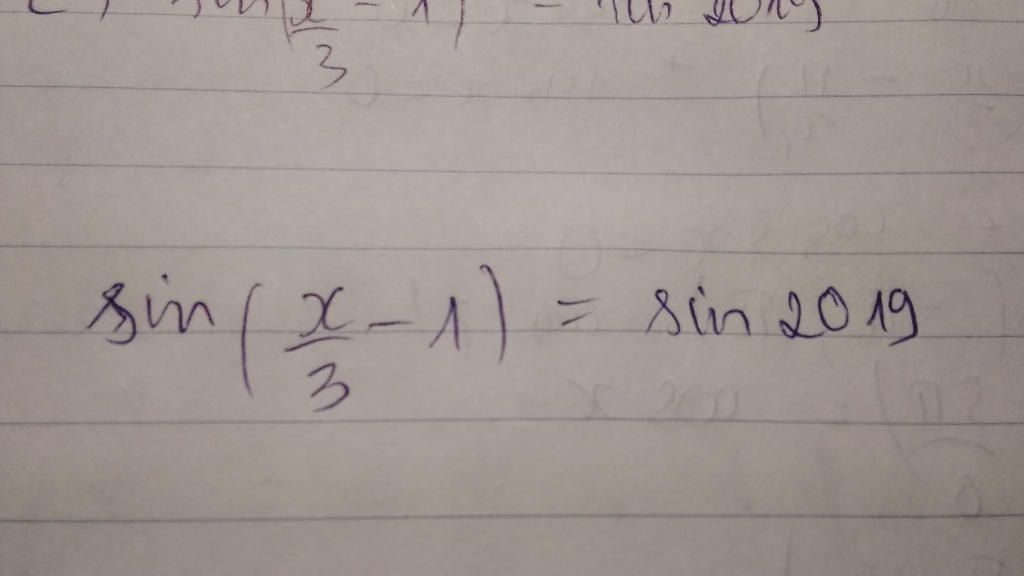 sin(x/3 - 1) = sin 2019
sin(x/3 - 1) = sin 2019